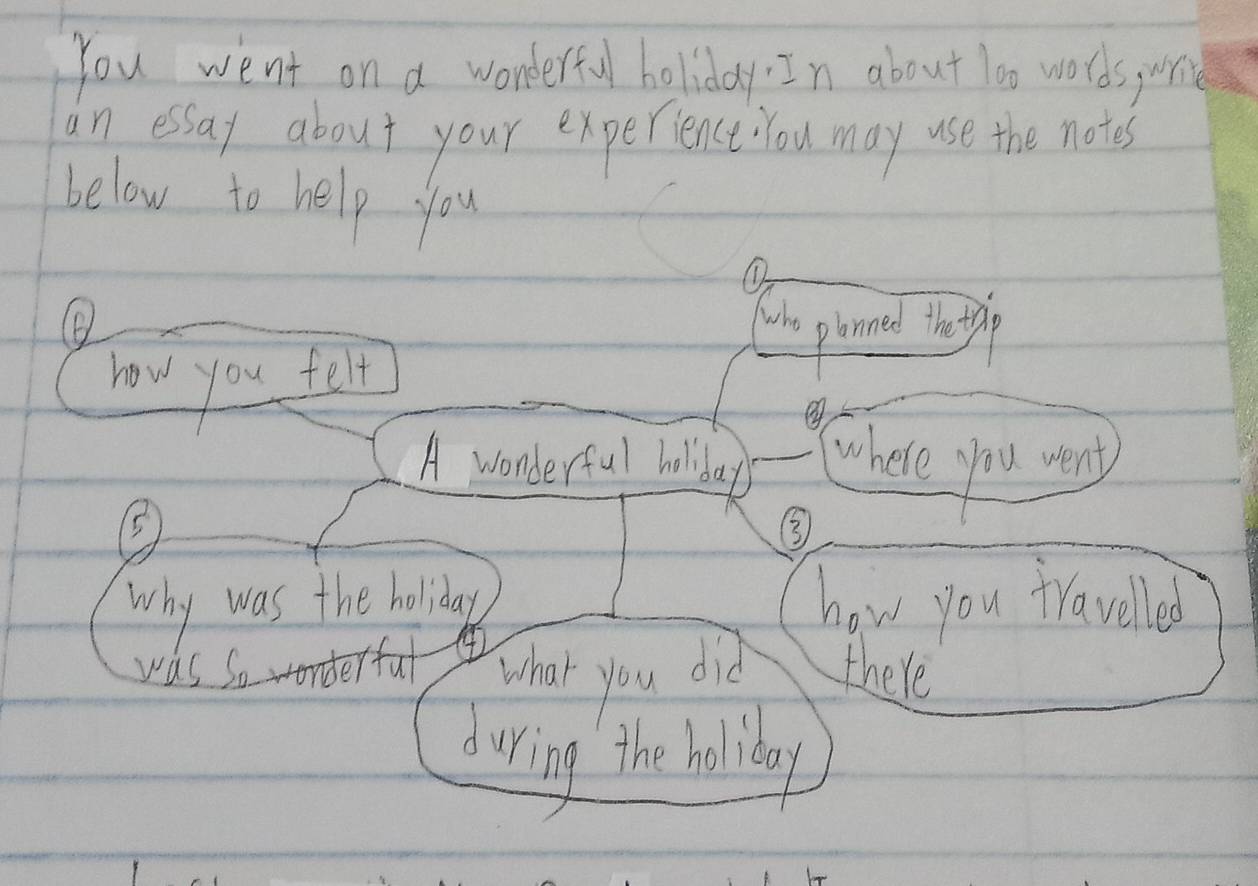 You went on a wonderful holiday. In about 100 words, write
an essay about your experience. You may use the notes
below to help you
①
who planned the trip
⑥
how you felt
②
where you went
A wonderful holiday
③
how you travelled
there
⑤
why was the holiday
was so wonderful
④
what you did
during the holiday